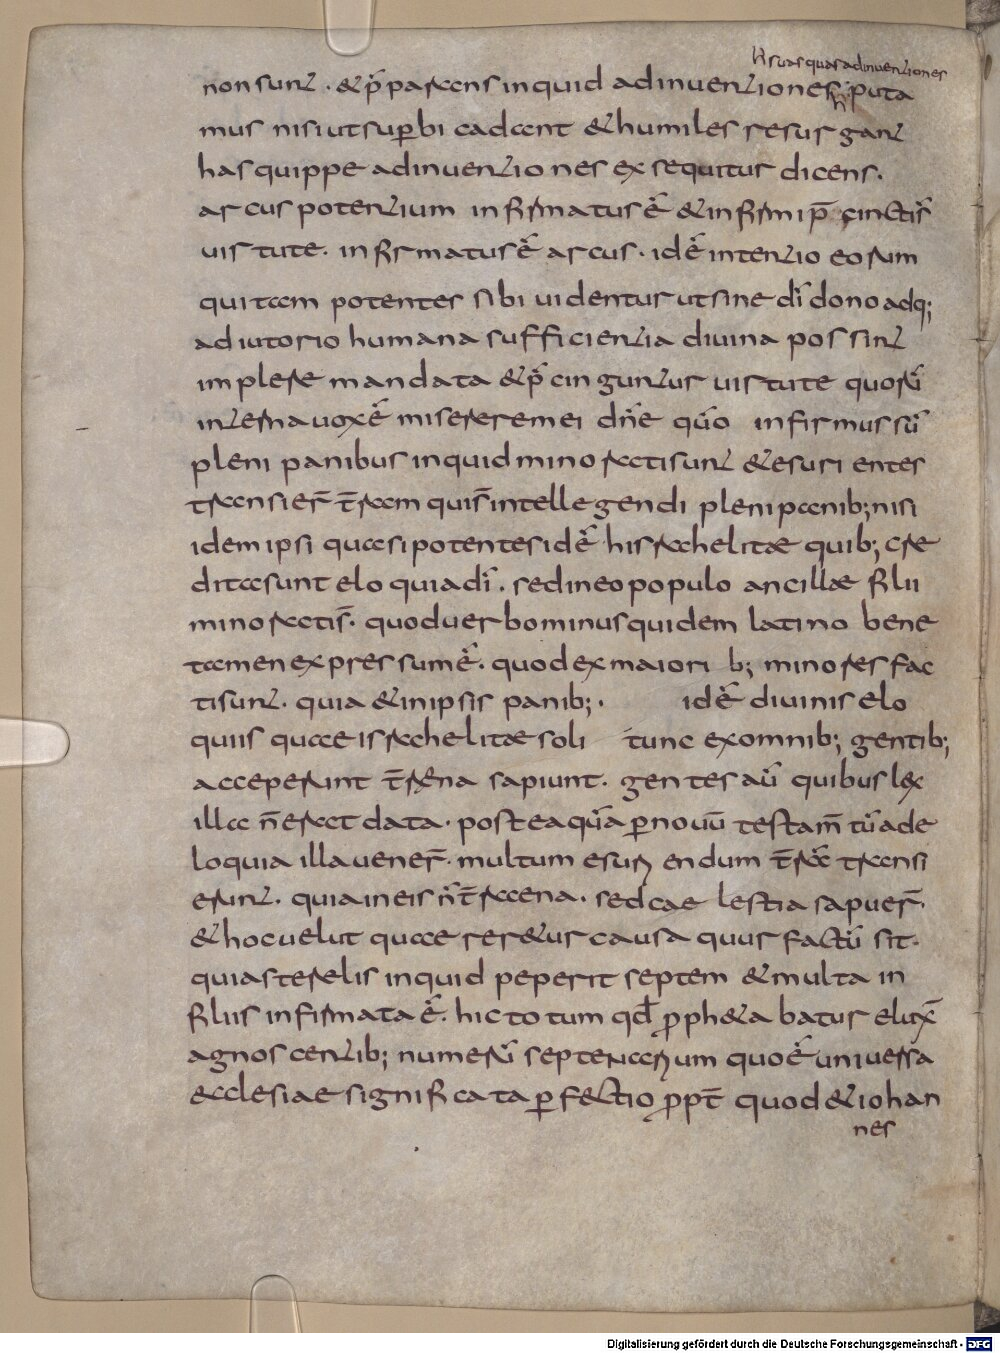 hi suas quas adinuentiones
non sunt . & p̄parens inquid adinuentiones n̄ puta
mus nisi ut sup̱bi cadant & humiles resurgant
has quippe adinuentiones exsequitur dicens.
arcus potentium infirmatus ē & infirmi p̄cincti s̄
uirtute. infirmatus ē arcus. id ē intentio eorum
qui tam potentes sibi uidentur ut sine dī dono adq;
adiutorio humana sufficientia diuina possint
implere mandata & p̄cinguntur uirtute quorū
interna uox ē miserere mei dn̄e qūo infirmus sū
pleni panibus inquid minorati sunt & esurientes
transier̄ t̄ram qui s̄ intellegendi pleni panib; nisi
idem ipsi quasi potentes id ē hisrahelitae quib; cre
dita sunt eloquia dī . sed in eo populo ancillae filii
minorati s̄. quod uerbo minus quidem latino bene
tamen expressum ē. quod ex maiorib; minores fac
ti sunt. quia & in ipsis panib; . id ē diuinis elo
quiis quae israhelitae soli tunc ex omnib; gentib;
acceperunt t̄rena sapiunt. gentes aū quibus lex
illa n̄ erat data. postea quā p̱ nouū testam̄tū ade
loquia illa uener̄. multum esuriendum t̄rā transi
erunt. quia in eis n̄ t̄raena. sed caelestia sapuer̄.
& hoc uelut quaereretur causa quur factū sit.
quia sterelis inquid peperit septem & multa in
filiis infirmata ē. hic totum qd̄ p̱ph&abatur eluxᷓ
agnoscentib; numerū septenarium quo ē uniuersa
ecclesiae significata p̱fectio p̱pt̄ quod & iohan
nes
Digitalisierung gefördert durch die Deutsche Forschungsgemeinschaft - DFG